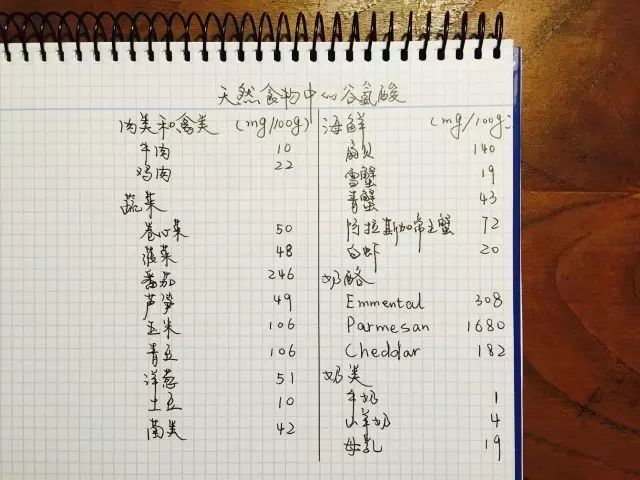 天然食物中的谷氨酸
肉类和禽类 (mg/100g)
牛肉 10
鸡肉 22
蔬菜
卷心菜 50
菠菜 48
番茄 246
芦笋 49
玉米 106
青豆 106
洋葱 51
土豆 10
菌类 42
海鲜 (mg/100g)
扇贝 140
雪蟹 19
青蟹 43
阿拉斯加帝王蟹 72
白虾 20
奶酪
Emmental 308
Parmesan 1680
Cheddar 182
奶类
牛奶 1
山羊奶 4
母乳 19